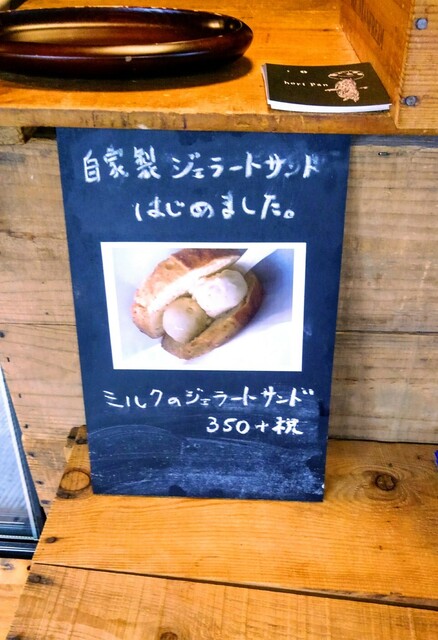 hori Pan
自家製 ジェラートサンド
はじめました。
ミルクのジェラートサンド
350+税